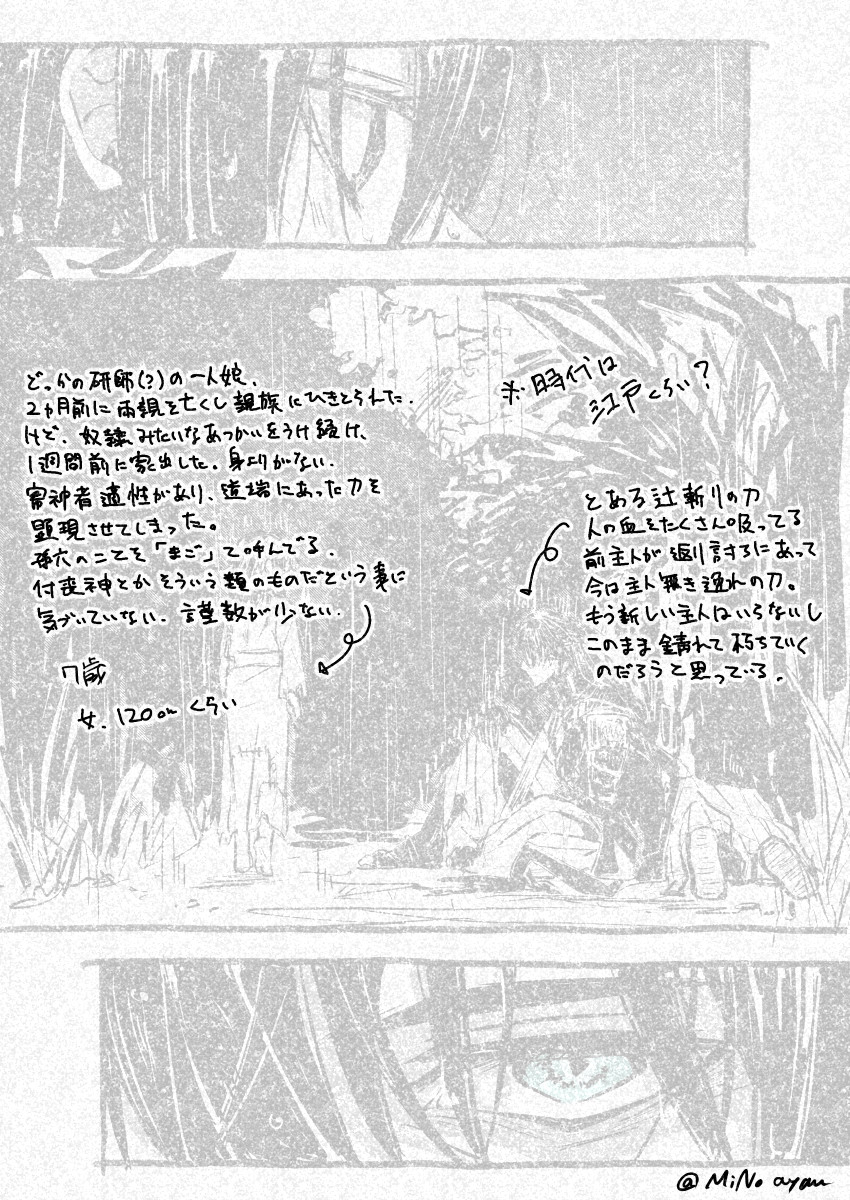 ※時代は
江戸くらい？
どっかの研師(?)の一人娘、
2ヵ月前に両親を亡くし親族にひきとられた。
けど、奴隷みたいなあつかいをうけ続け、
1週間前に家出した。身よりがない。
審神者適性があり、道端にあった刀を
顕現させてしまった。
孫六のことを「まご」て呼んでる。
付喪神とかそういう類のものだという事に
気づいていない。言葉数が少ない。
7歳
女、120cmくらい
とある辻斬りの刀
人の血をたくさん吸ってる
前主人が返り討ちにあって
今は主人無き逸れの刀。
もう新しい主人はいらないし
このまま錆れて朽ちていく
のだろうと思っている。
@MiNo ayau